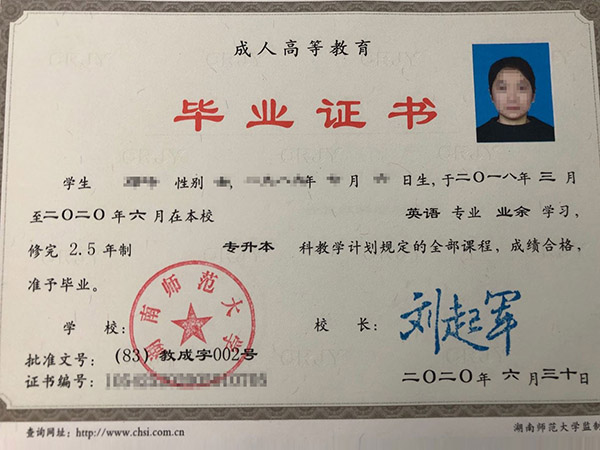 成人高等教育
毕业证书
学生 性别 , 年 月 日生,于二〇一八年三月
至二〇二〇年六月在本校 英语 专业 业余 学习,
修完 2.5 年制 专升本 科教学计划规定的全部课程,成绩合格,
准予毕业。
湖南师范大学
学 校: 校 长: 刘起军
批准文号: (83)教成字002号
证书编号: 二〇二〇年 六月三十日
查询网址:http://www.chsi.com.cn 湖南师范大学监制